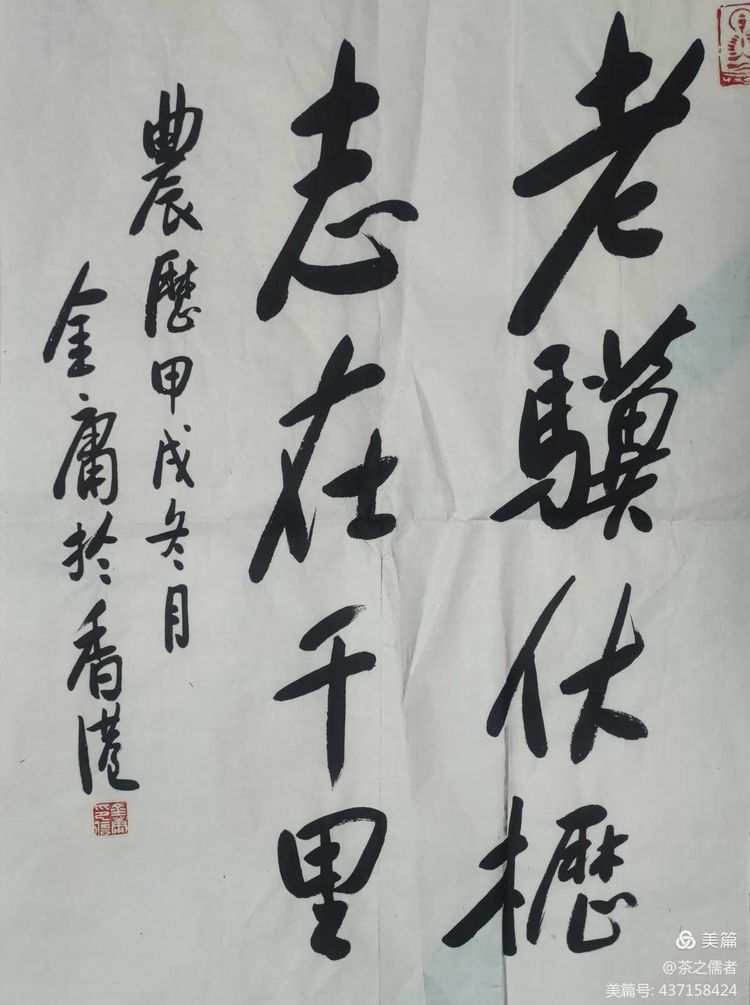 老驥伏櫪
志在千里
農歷甲戌冬月
金庸於香港
金庸印信
美篇
@茶之儒者
美篇号: 437158424